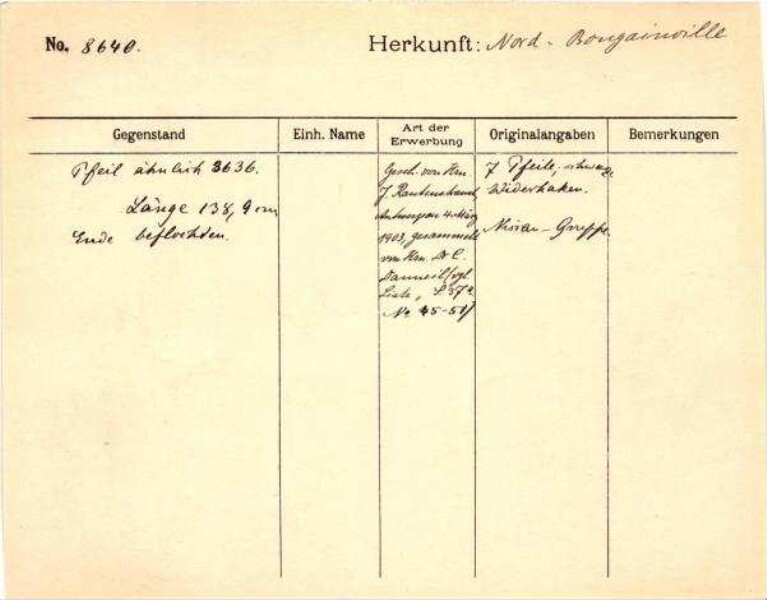 No. 8640. Herkunft: Nord - Bougainville
Gegenstand Einh. Name Art der Erwerbung Originalangaben Bemerkungen
Pfeil ähnlich 3636.
Länge 138,9 cm
Ende beflochten.
Gesch. von Hrn.
J. Rautenstrauch,
Antwerpen 4. März
1903, gesammelt
von Hrn. Dr C.
Danneil (vgl.
Liste, S. 37a
No 45-51)
7 Pfeile, schwarze
Widerhaken.
Nissan - Gruppe.